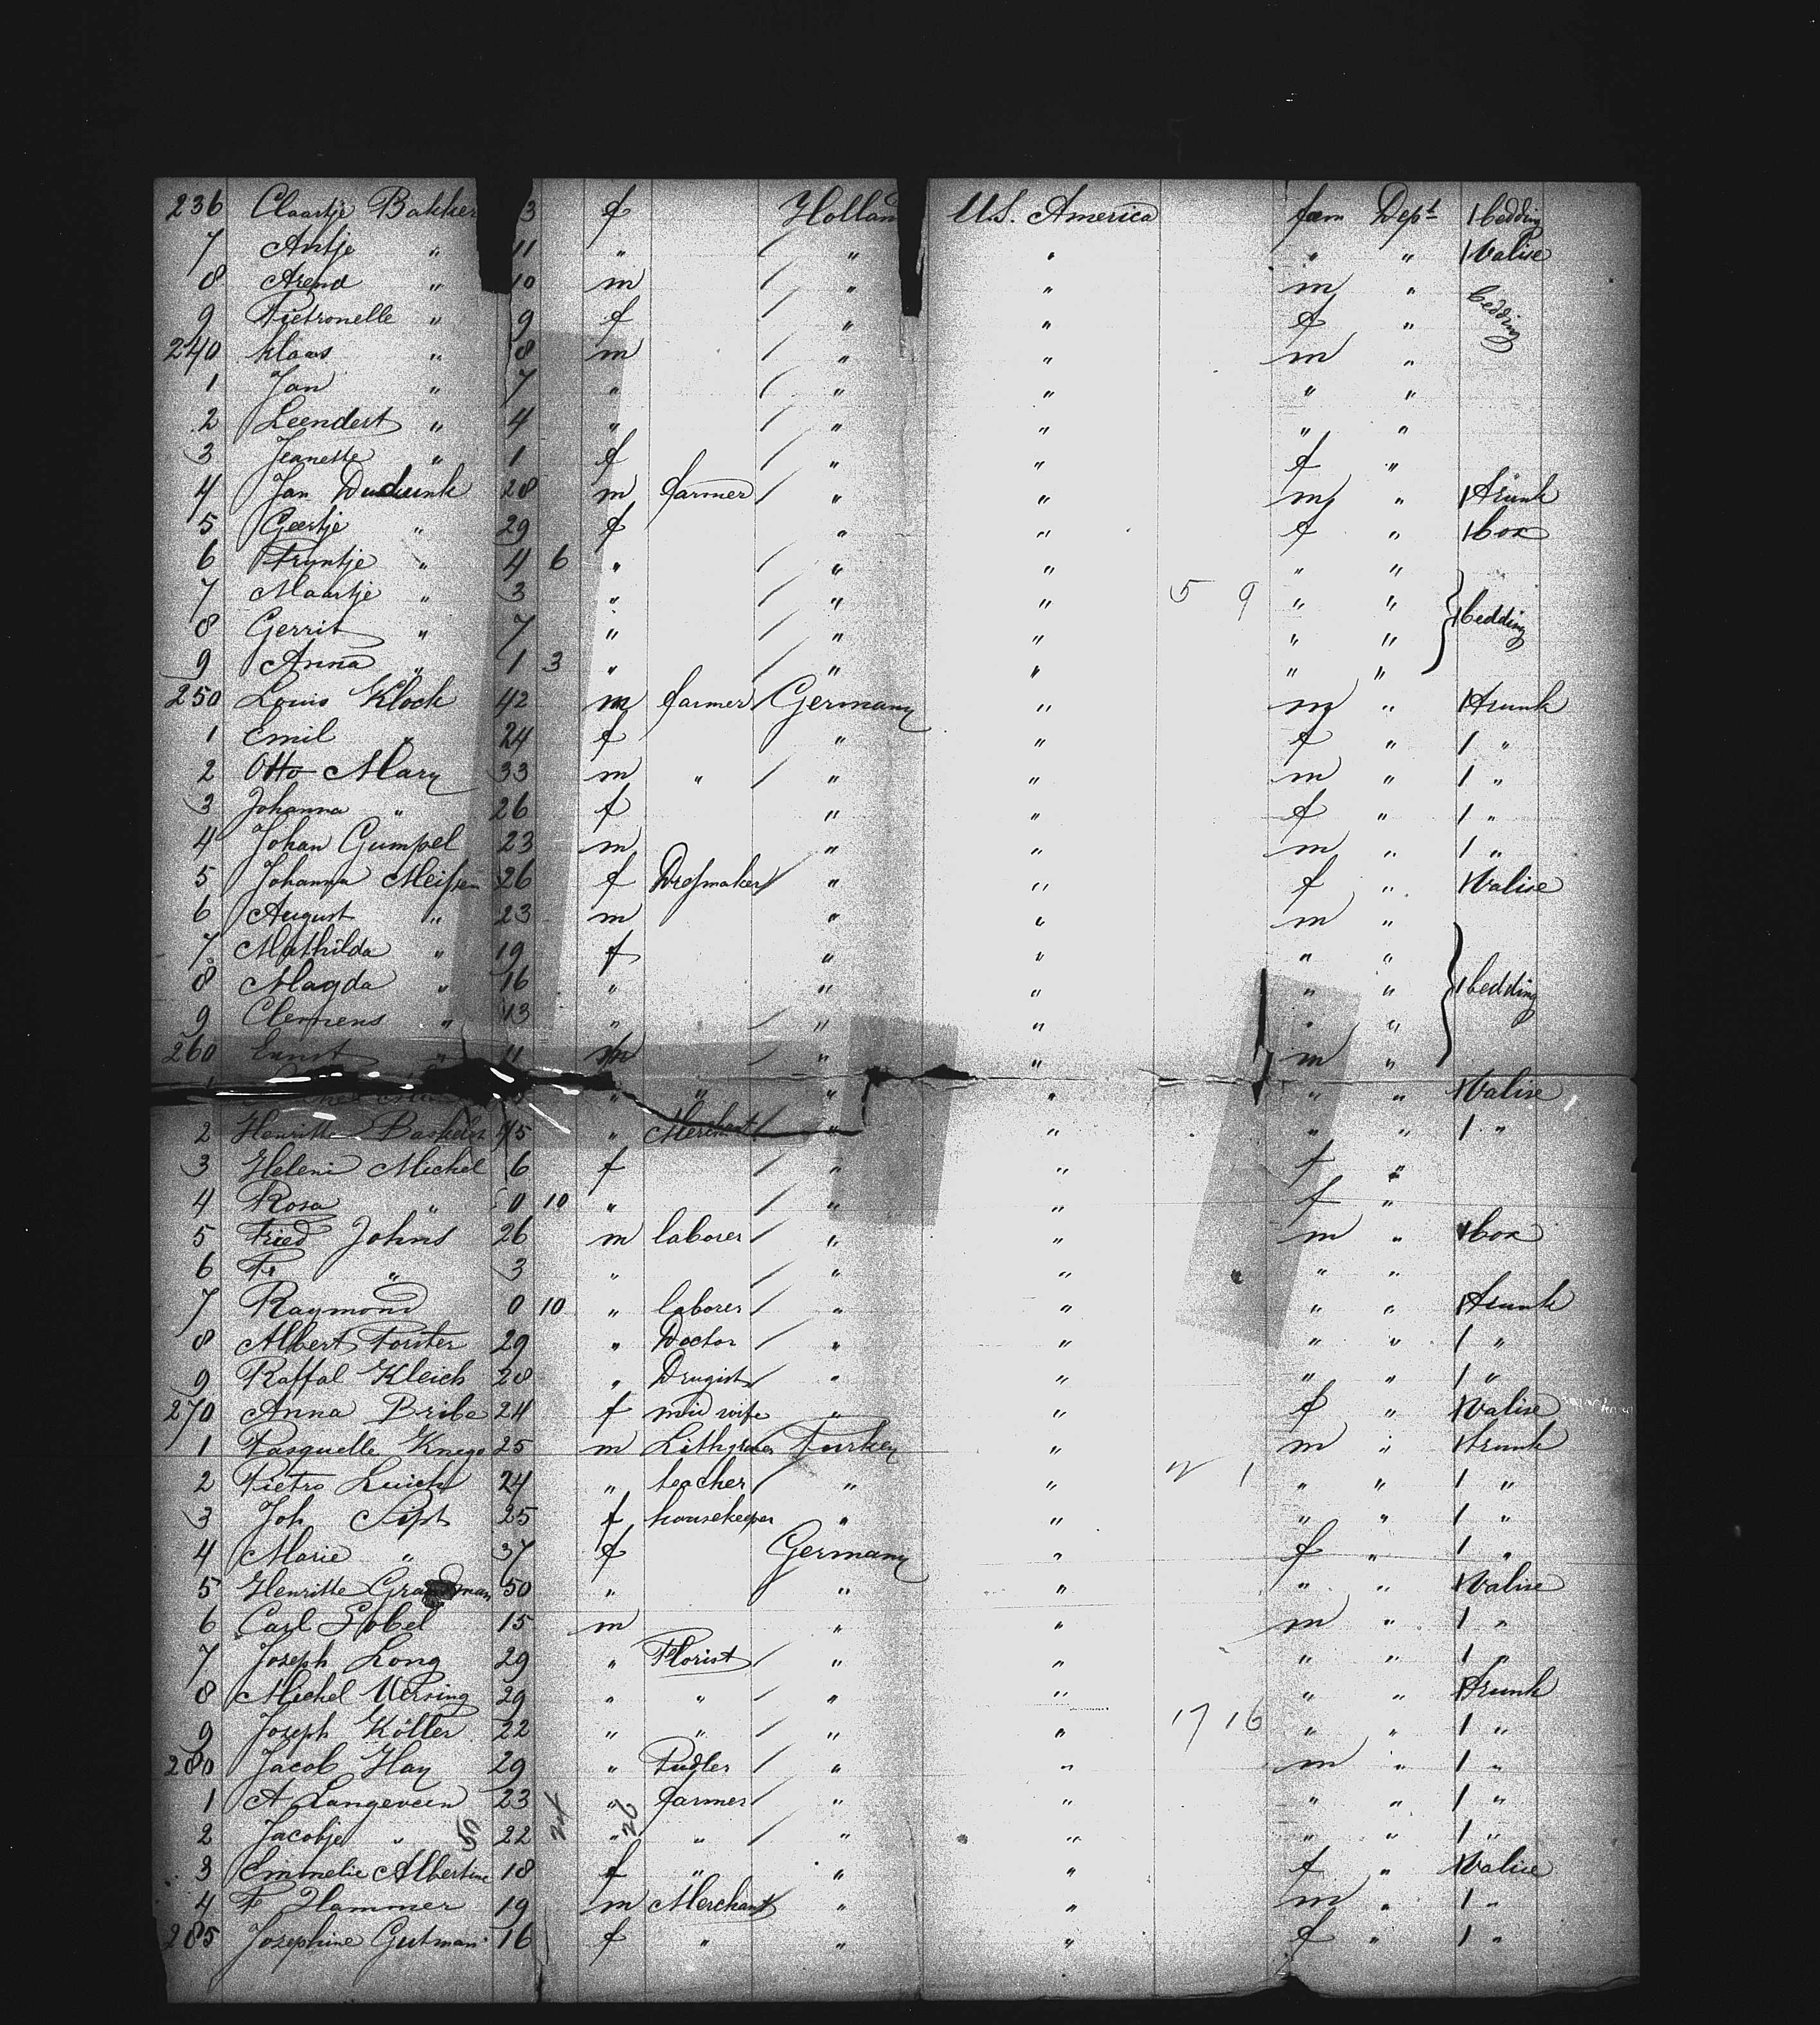 236 Claartje Bakker 3 f Holland U.S. America fam Dept 1 bedding
7 Antje " 11 " " " " " 1 Valise
8 Arend " 10 m " " m "
9 Pietronelle " 9 f " " f " bedding
240 Klaas " 8 m " " m "
1 Jan " 7 " " " " "
2 Leendert " 4 " " " " "
3 Jeanette " 1 f " " f "
4 Jan 28 m farmer " " m " 1 trunk
5 Geertje " 29 f " " f " 1 box
6 Tryntje " 4 6 " " " " "
7 Maartje " 3 " " " 5 9 " "
8 Gerrit " 7 " " " " " 1 bedding
9 Anna " 1 3 " " " " "
250 Louis Klock 42 m farmer Germany " m " 1 trunk
1 Emil " 24 f " " f " 1 "
2 Otto Mary 33 m " " " m " 1 "
3 Johanna " 26 f " " f " 1 "
4 Johan Gumpel 23 m " " m " 1 "
5 Johanna Meißen 26 f Dreßmaker " " f " 1 Valise
6 August " 23 m " " m "
7 Mathilda " 19 f " " " "
8 Magda " 16 " " " " " 1 bedding
9 Clemens " 13 " " " " "
260 Ernst " 11 m " " m "
1 " " " " " " 1 Valise
2 Henritte 45 " Merchant " " " " 1 "
3 Heleni Michel 6 f " " f "
4 Rosa " 0 10 " " " f "
5 Fried Johns 26 m laborer " " m " 1 box
6 Fr " 3 " " " " "
7 Raymond 0 10 " laborer " " " " 1 trunk
8 Albert Forster 29 " Doctor " " " " 1 "
9 Raffal Kleich 28 " Drugist " " " " 1 "
270 Anna Bribe 24 f mid wife " " f " 1 Valise
1 Pasquelle Knego 25 m Turkey " m " 1 trunk
2 Pietro 24 " teacher " " 1 " " 1 "
3 Joh 25 f housekeeper " " " " 1 "
4 Marie " 37 f Germany " f " 1 "
5 Henritte 50 " " " " " 1 Valise
6 Carl Gobel 15 m " " m " 1 "
7 Joseph Long 29 " Florist " " " " 1 "
8 Michel 29 " " " " " " 1 trunk
9 Joseph Köller 22 " " " " 17 16 " " 1 "
280 Jacob Hay 29 " Pudler " " m " 1 "
1 A Langeveen 23 " farmer " " " " 1 "
2 Jacobje " 59 22 24 " 26 " " " " " 1 "
3 Emmelie Albertine 18 f " " " f " 1 Valise
4 F Hammer 19 m Merchant " " m " 1 "
285 Josephine Gutman 16 f " " " f " 1 "